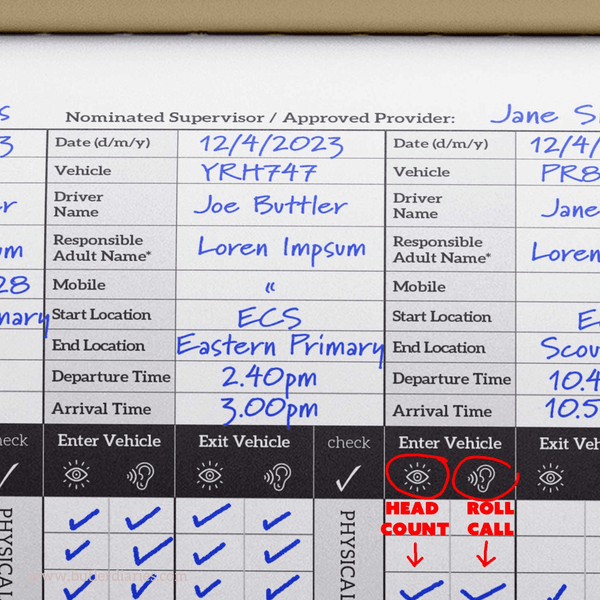 s Nominated Supervisor / Approved Provider: Jane S
3 Date (d/m/y) 12/4/2023 Date (d/m/y) 12/4/
Vehicle YRH747 Vehicle PR8
er Driver Name Joe Buttler Driver Name Jane
um Responsible Adult Name* Loren Impsum Responsible Adult Name* Loren
28 Mobile " Mobile
mary Start Location ECS Start Location E
End Location Eastern Primary End Location Scou
Departure Time 2.40pm Departure Time 10.4
Arrival Time 3.00pm Arrival Time 10.5
heck Enter Vehicle Exit Vehicle check Enter Vehicle Exit Veh
HEAD COUNT ROLL CALL
PHYSICAL PHYSICAL